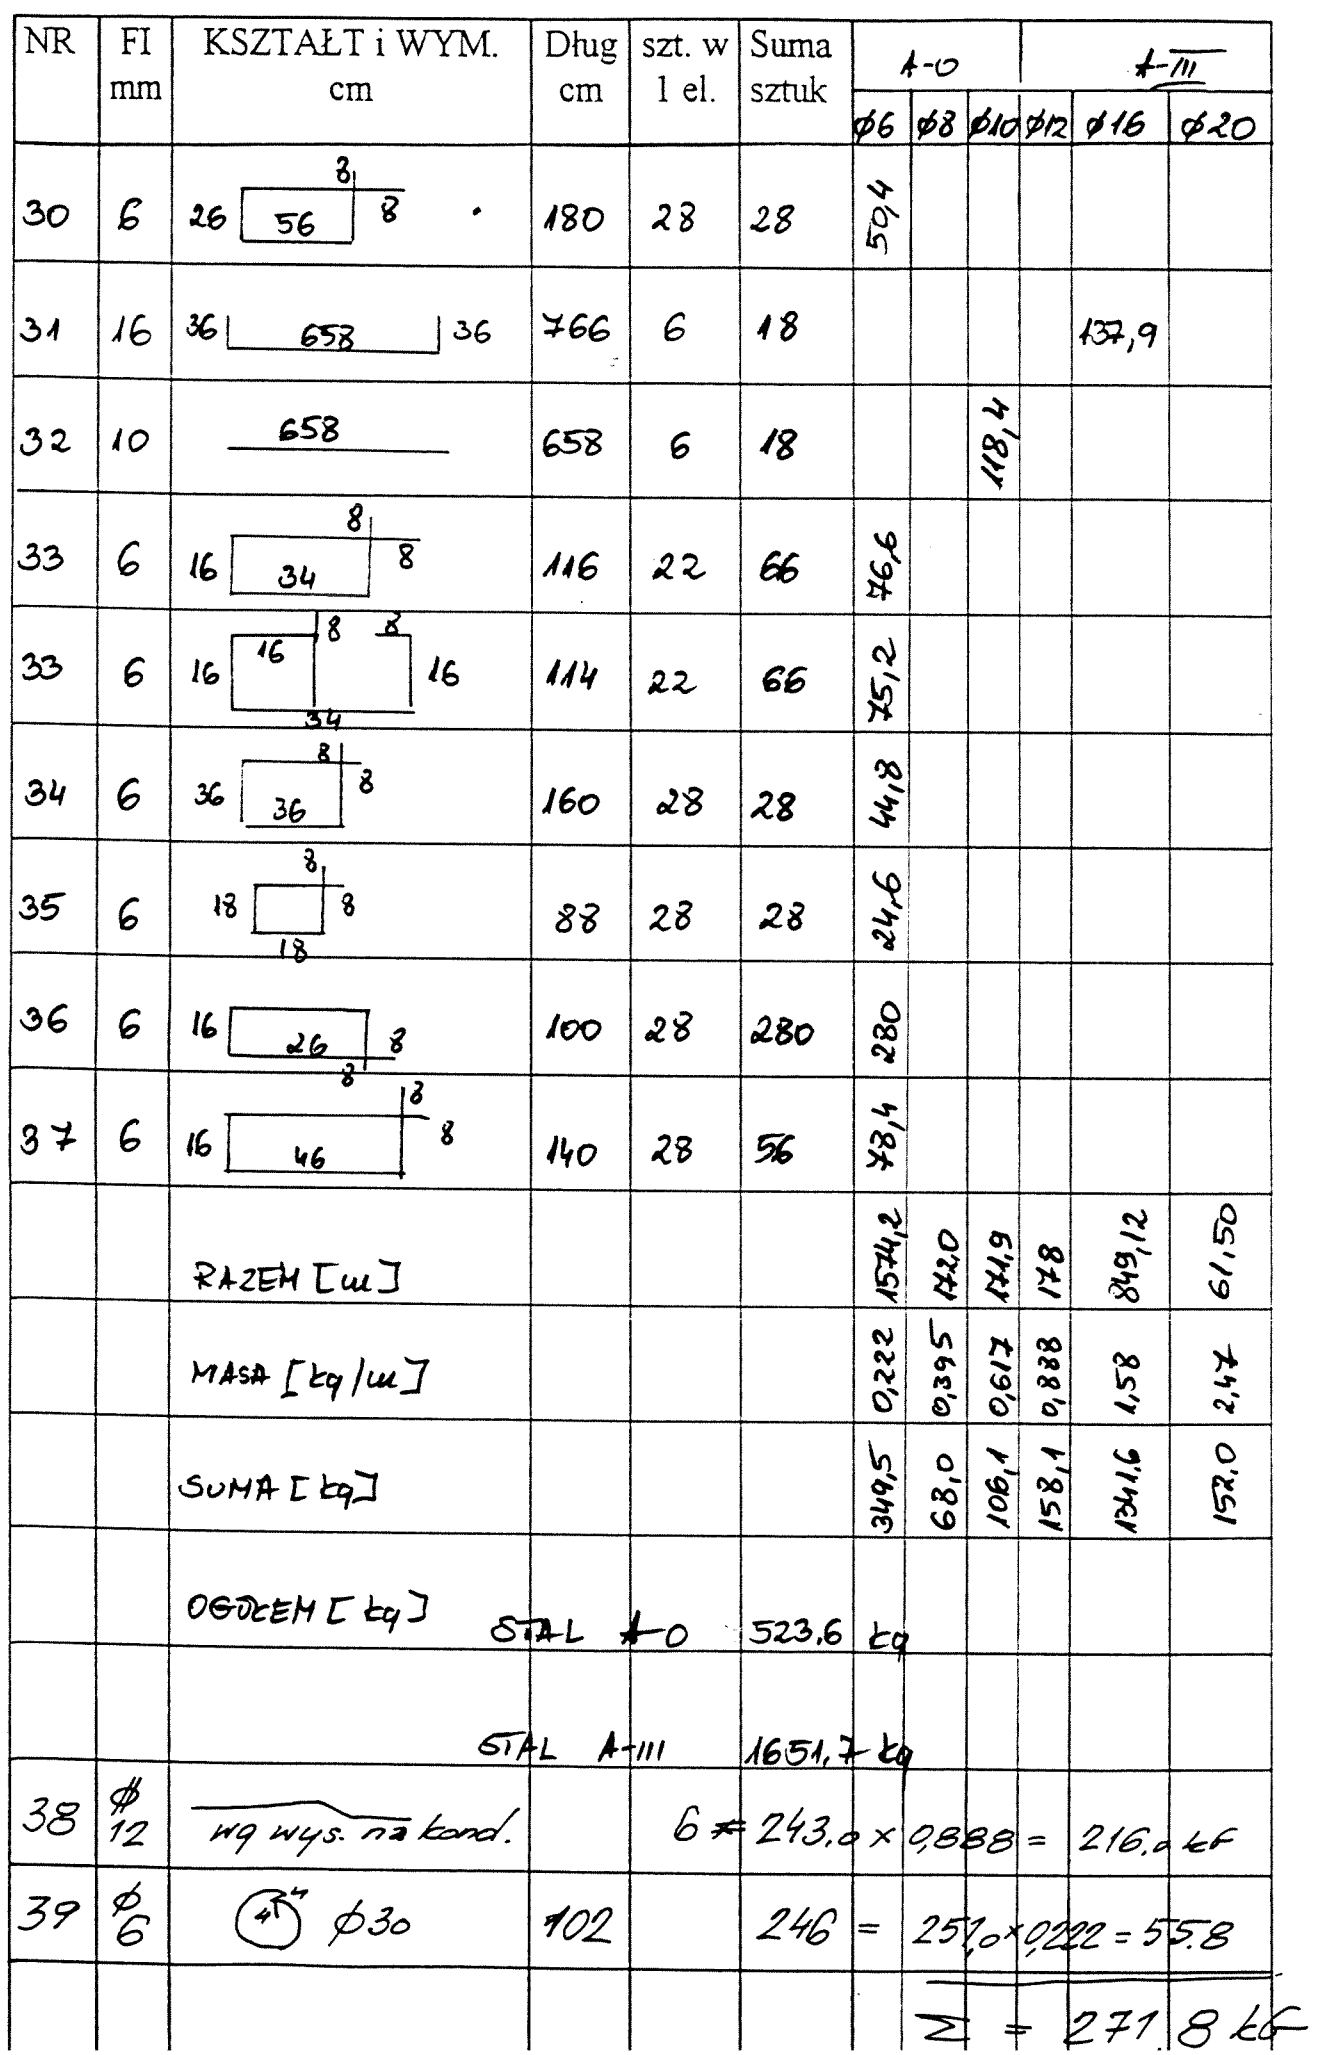 NR FI KSZTAŁT i WYM. Dług szt. w Suma A-0 A-III
mm cm cm 1 el. sztuk
φ6 φ8 φ10 φ12 φ16 φ20
8
30 6 26 56 8 180 28 28 50,4
31 16 36 658 36 766 6 18 137,9
32 10 658 658 6 18 118,4
8
33 6 16 34 8 116 22 66 76,6
8 8
33 6 16 16 16 114 22 66 75,2
34
8
34 6 36 36 8 160 28 28 44,8
8
35 6 18 8 88 28 28 24,6
18
36 6 16 26 8 100 28 280 280
8
8
37 6 16 46 8 140 28 56 78,4
RAZEM [m] 1574,2 172,0 171,9 178 849,12 61,50
MASA [kg/m] 0,222 0,395 0,617 0,888 1,58 2,47
SUMA [kg] 349,5 68,0 106,1 158,1 1341.6 152,0
OGÓŁEM [kg] STAL A-0 523.6 kg
STAL A-III 1651.7 kg
38 φ 12 wg wys. na kond. 6 = 243.0 x 0,888 = 216.0 kG
39 φ 6 4 4 φ30 102 246 = 251,0 x 0,222 = 55.8
Σ = 271.8 kG